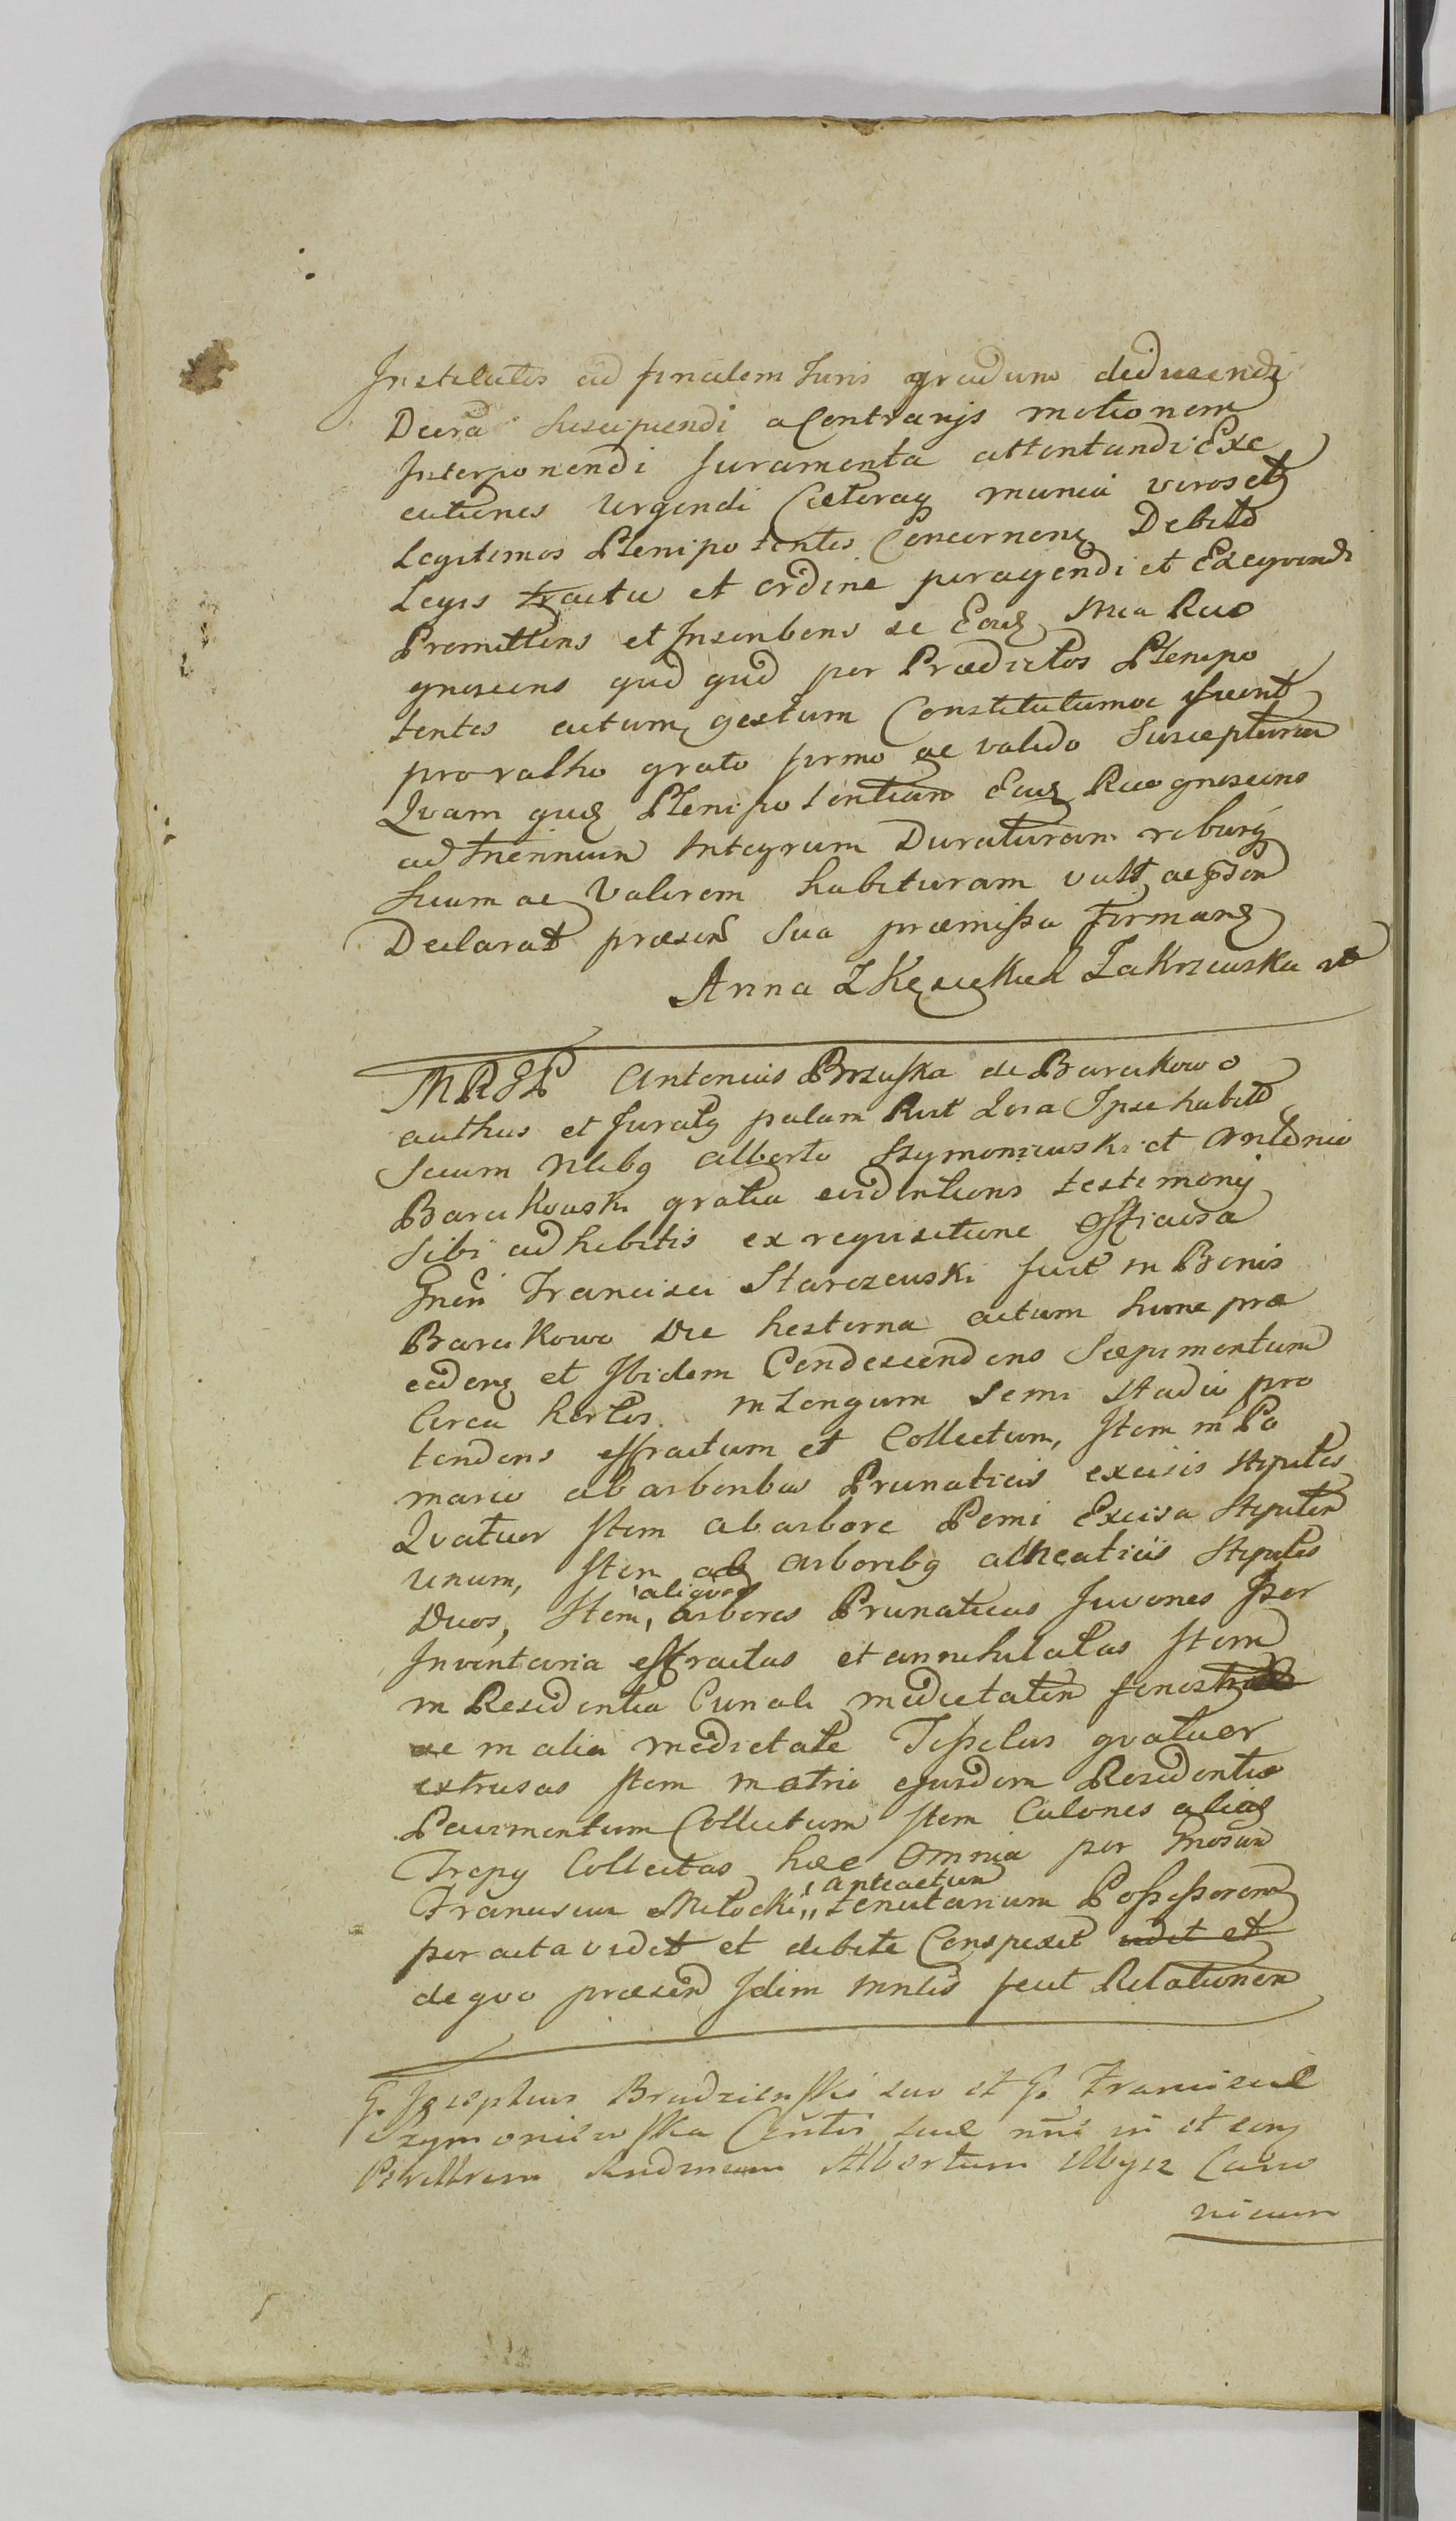 Institutis ad finalem Juris gradum deducendi
Decrā Suscipiendi a Contrarijs motionem
Interponendi Juramenta attentandi Exe
cutiones Urgendi Cæteraq munia veros et
Legitimos Plenipotentes Concernenẓ Debito
Legis tractu et ordine peragendi et Exeqvendi
Promittens et Inscribens se Eadẓ Mca Reco
gnoscens qud qud per Prædictos Plenipo
tentes actum gestum Constitutumve fuerit
pro ratho grato firmo ac valido Suscepturam
Qvam quẓ Plenipotentiam Eadẓ Recognoscens
ad triennium Integrum Duraturam roburq
Suum ac Valorem habituram vult ac psen
Declarat præsen Sua præmissa firmanẓ
Anna Z Kęsickich Zakrzewska
MRGP Antonius Brzuska de Barcikowo
authus et Juratq palam Rect Lora Ipse habito
Secum Nlibq Alberto Szymoniewski et Antonio
Barcikowski gratia evidentioris testimonij
Sibi adhibitis ex requisitione Officiosa
Gnen Francisci Starczewski fuit in Bonis
Barcikowo Die hesterna actum hunc præ
cedenẓ et Ibidem Condescendens Sæpimentum
Circa hortos in Longum semi stadii pro
tendens effractum et Collectum, Item in Po
mario ab arboribus Prunaticis excisis stipites
Qvatuor Item ab arbore Pomi Excisa Stipitem
unum, Item ab arboribq alneaticiis Stipites
Duos, Item, aliqvas arbores Prunaticas Juvenes per
Inventaria effractas et annihilatas Item
in Residentia Curiali medietatem fenestræ
ac in alia medietate Tesselas qvatuor
extrusas Item in atrio ejusdem Residentiæ
Pavimentum Collectum Item Culones alias
Trepy Collectas hæc Omnia per Gnosum
Franciscum Milocki,, anteactum tenutarium Possessorem
peracta vidit et debite Conspexit vidit et
de qvo præsen Idem Mntis fecit Relationem
G. Josephus Brudziński suo et G. Franciscæ
Szymoniewska Contis suæ nne in et eorq
Albertum
nicum